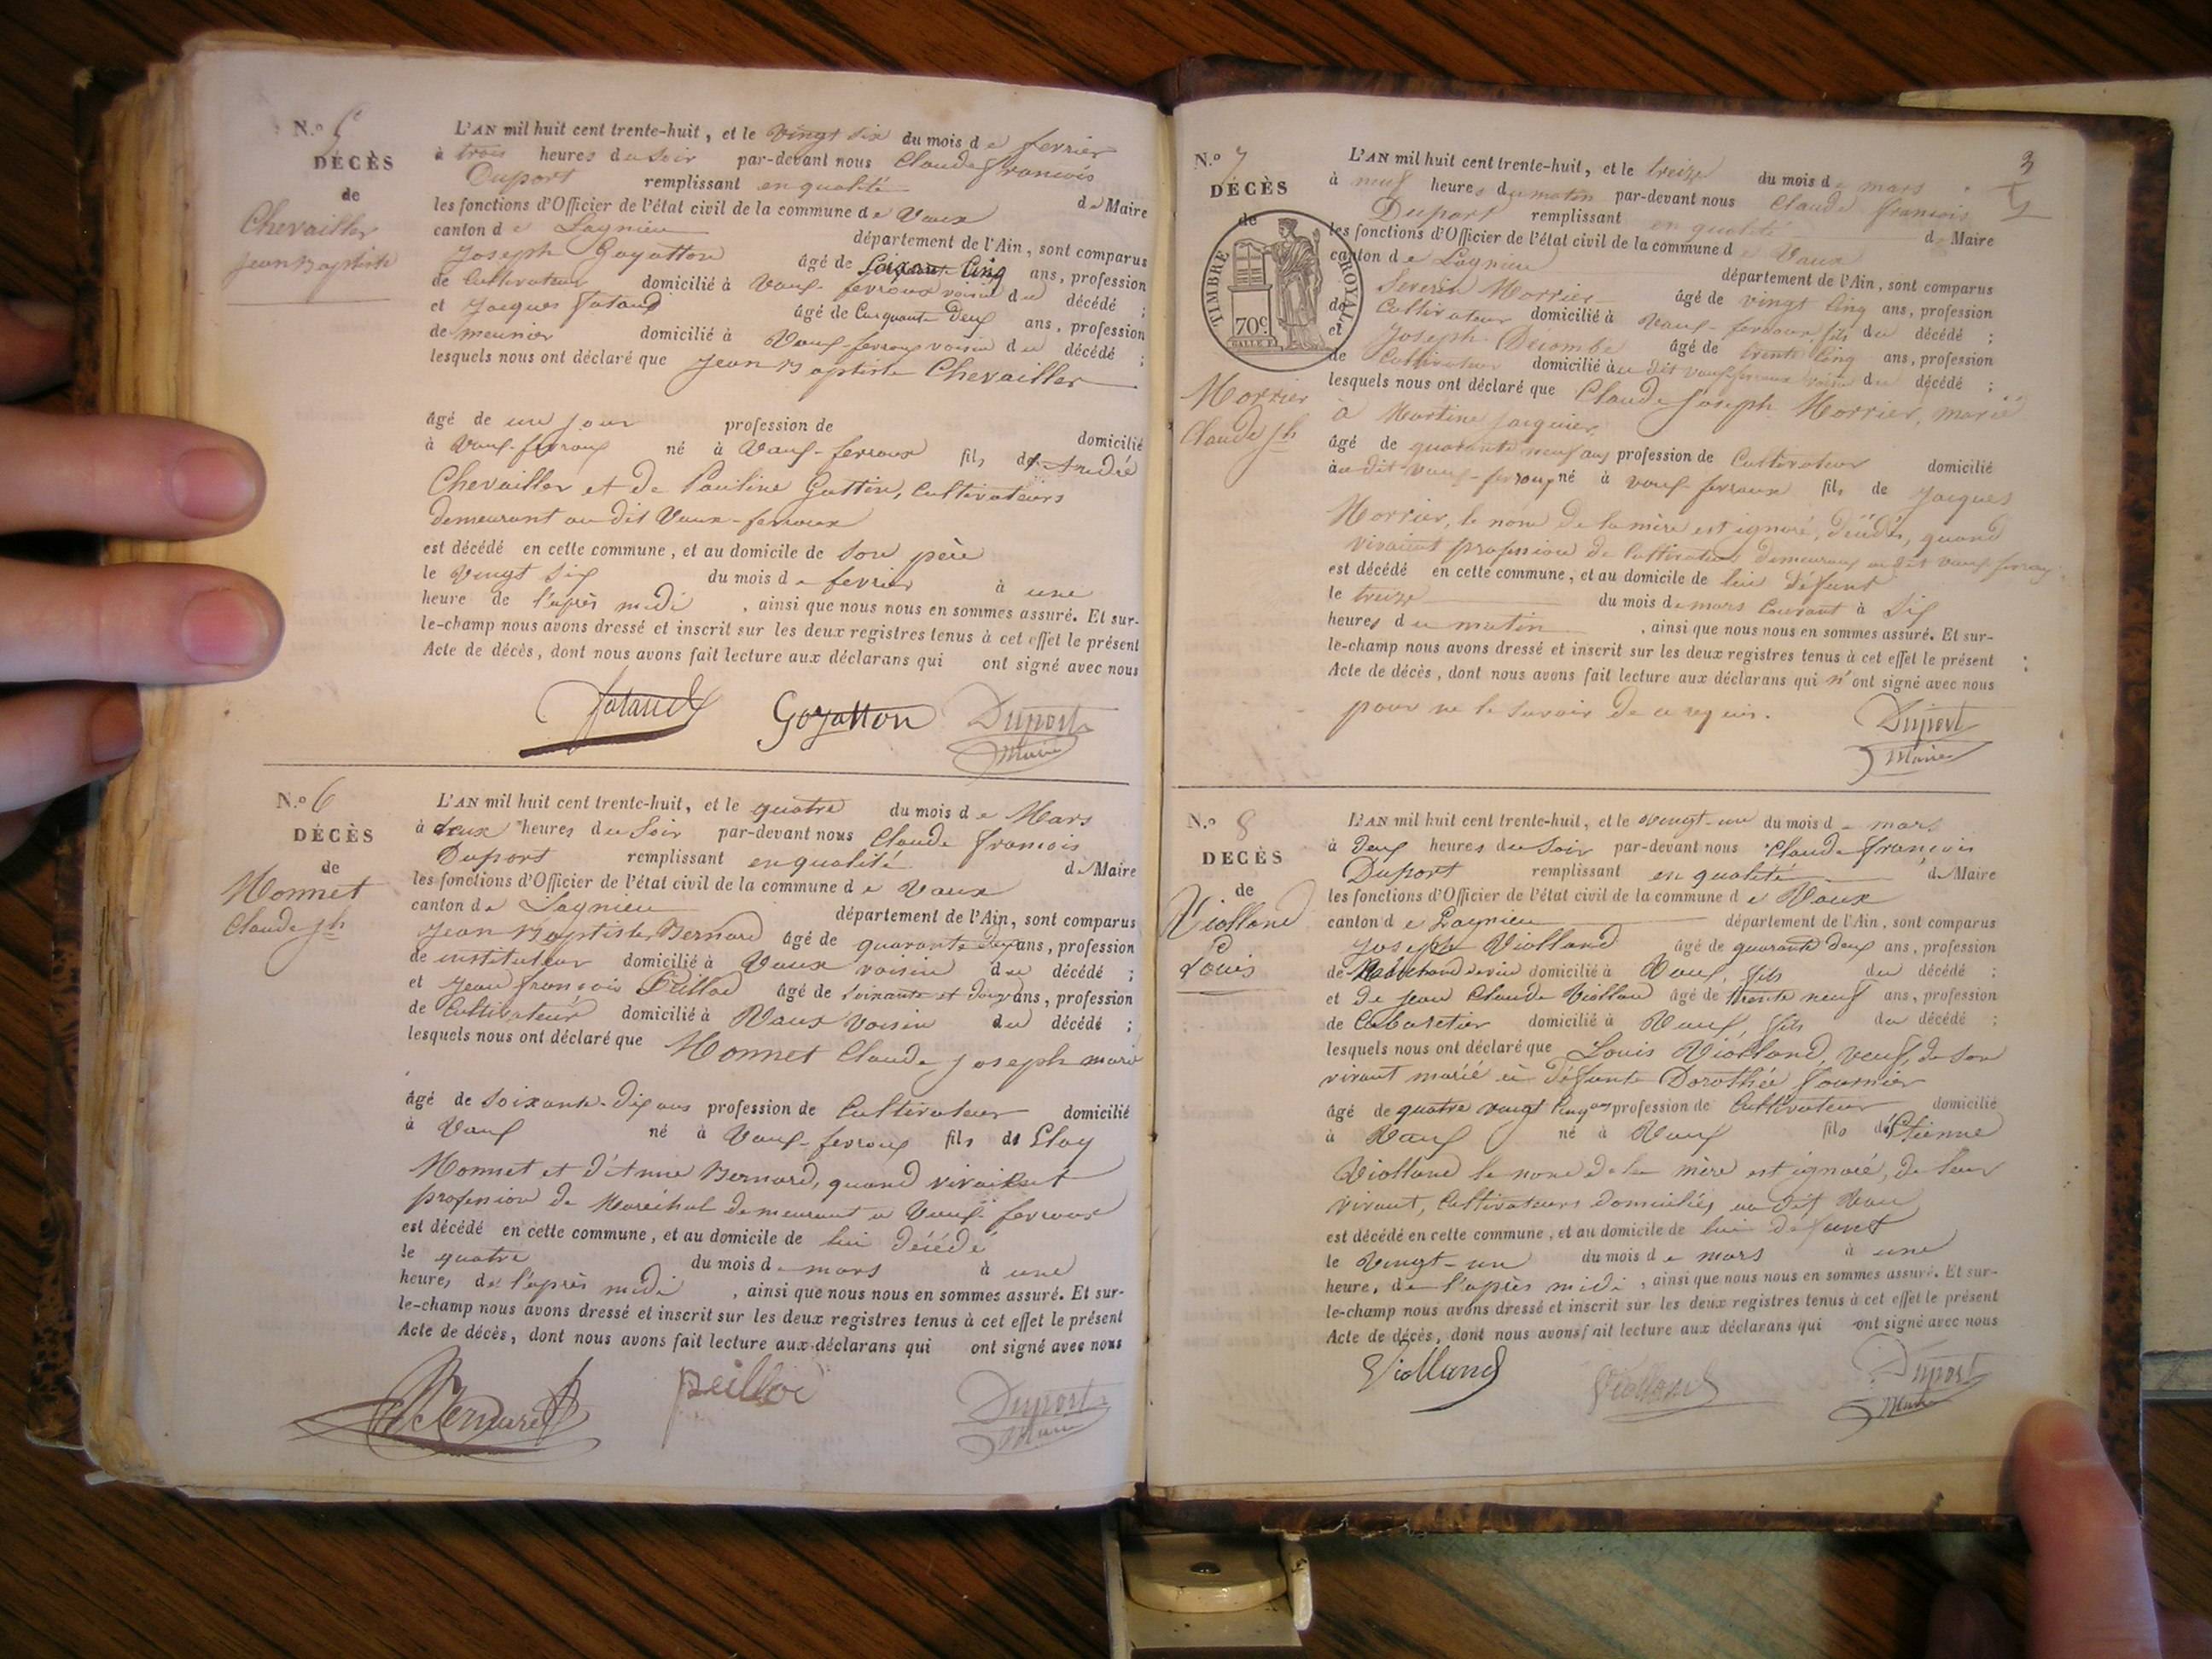 N.º 5
DÉCÈS
de
Chevailler
Jean Baptiste
L'AN mil huit cent trente-huit, et le vingt six du mois de fevrier
à trois heures du soir par-devant nous Claude françois
Duport remplissant en qualité de Maire
les fonctions d'Officier de l'état civil de la commune de Vaux
canton de Lagnieu département de l'Ain, sont comparus
Joseph Goyatton âgé de soixante cinq ans, profession
de Cultivateur domicilié à Vaux-fevroux voisin du décédé ;
et Jacques âgé de Cinquante Deux ans, profession
de meunier domicilié à Vaux-fevroux voisin du décédé ;
lesquels nous ont déclaré que Jean Baptiste Chevailler
âgé de un jour profession de domicilié
à Vaux-fevroux né à Vaux-fevroux fils d'André
Chevailler et de Pauline Guttin, Cultivateurs
demeurant au dit Vaux-fevroux
est décédé en cette commune, et au domicile de son père
le vingt six du mois de fevrier à une
heure de l'après midi, ainsi que nous nous en sommes assuré. Et sur-
le-champ nous avons dressé et inscrit sur les deux registres tenus à cet effet le présent
Acte de décès, dont nous avons fait lecture aux déclarans qui ont signé avec nous
Goyatton Duport
Maire
N.º 6
DÉCÈS
de
Monnet
Claude Jh
L'AN mil huit cent trente-huit, et le quatre du mois de Mars
à deux heures du soir par-devant nous Claude françois
Duport remplissant en qualité de Maire
les fonctions d'Officier de l'état civil de la commune de Vaux
canton de Lagnieu département de l'Ain, sont comparus
Jean Baptiste Bernard âgé de quarante deux ans, profession
de instituteur domicilié à Vaux voisin du décédé ;
et Jean françois Peillod âgé de soixante et ans, profession
de Cultivateur domicilié à Vaux voisin du décédé ;
lesquels nous ont déclaré que Monnet Claude Joseph marié
âgé de soixante-dix ans profession de Cultivateur domicilié
à Vaux né à Vaux-fevroux fils de Eloy
Monnet et d'Anne Bernard, quand vivaient
profession de Maréchal demeurant a Vaux-fevroux
est décédé en cette commune, et au domicile de lui décédé
le quatre du mois de mars à une
heure, de l'après midi, ainsi que nous nous en sommes assuré. Et sur-
le-champ nous avons dressé et inscrit sur les deux registres tenus à cet effet le présent
Acte de décès, dont nous avons fait lecture aux déclarans qui ont signé avec nous
Bernard Duport
Maire
3
N.º 7
DÉCÈS
de
TIMBRE ROYAL
70c
Morrier
Claude Jh
L'AN mil huit cent trente-huit, et le treize du mois de mars
à neuf heures du matin par-devant nous Claude françois
Duport remplissant en qualité de Maire
les fonctions d'Officier de l'état civil de la commune de Vaux
canton de Lagnieu département de l'Ain, sont comparus
Severin Morrier âgé de vingt cinq ans, profession
de Cultivateur domicilié à Vaux-fevroux, fils du décédé ;
et Joseph Decombe âgé de trente cinq ans, profession
de Cultivateur domicilié au dit vaux-fevroux voisin du décédé ;
lesquels nous ont déclaré que Claude Joseph Morrier, marié
à Martine Jacquier
âgé de quarante neuf ans profession de Cultivateur domicilié
au dit vaux-fevroux né à vaux-fevroux fils de Jacques
Morrier, le nom de la mère est ignoré, décédés, quand
vivaient profession de Cultivateurs demeurant au dit vaux fevroux
est décédé en cette commune, et au domicile de lui défunt
le treize du mois de mars Courant à six
heures du matin, ainsi que nous nous en sommes assuré. Et sur-
le-champ nous avons dressé et inscrit sur les deux registres tenus à cet effet le présent ;
Acte de décès, dont nous avons fait lecture aux déclarans qui n'ont signé avec nous
pour ne le savoir de ce requis.
Duport
Maire
N.º 8
DÉCÈS
de
Violland
Louis
L'AN mil huit cent trente-huit, et le vingt-un du mois de mars
à deux heures du soir par-devant nous Claude françois
Duport remplissant en qualité de Maire
les fonctions d'Officier de l'état civil de la commune de Vaux
canton de Lagnieu département de l'Ain, sont comparus
Joseph Violland âgé de quarante deux ans, profession
de Marchand de vin domicilié à Vaux, fils du décédé ;
et de Jean Claude Violland âgé de trente neuf ans, profession
de Cabaretier domicilié à Vaux, fils du décédé ;
lesquels nous ont déclaré que Louis Violland, veuf, de son
vivant marié à défunte Dorothée fournier
âgé de quatre vingt cinq ans profession de Cultivateur domicilié
à Vaux né à Vaux fils d'Etienne
Violland le nom de la mère est ignoré, de leur
vivant, Cultivateurs domiciliés, au dit Vaux
est décédé en cette commune, et au domicile de lui défunt
le vingt-un du mois de mars à une
heure, de l'après midi, ainsi que nous nous en sommes assuré. Et sur-
le-champ nous avons dressé et inscrit sur les deux registres tenus à cet effet le présent
Acte de décès, dont nous avons fait lecture aux déclarans qui ont signé avec nous
Violland Violland Duport
Maire